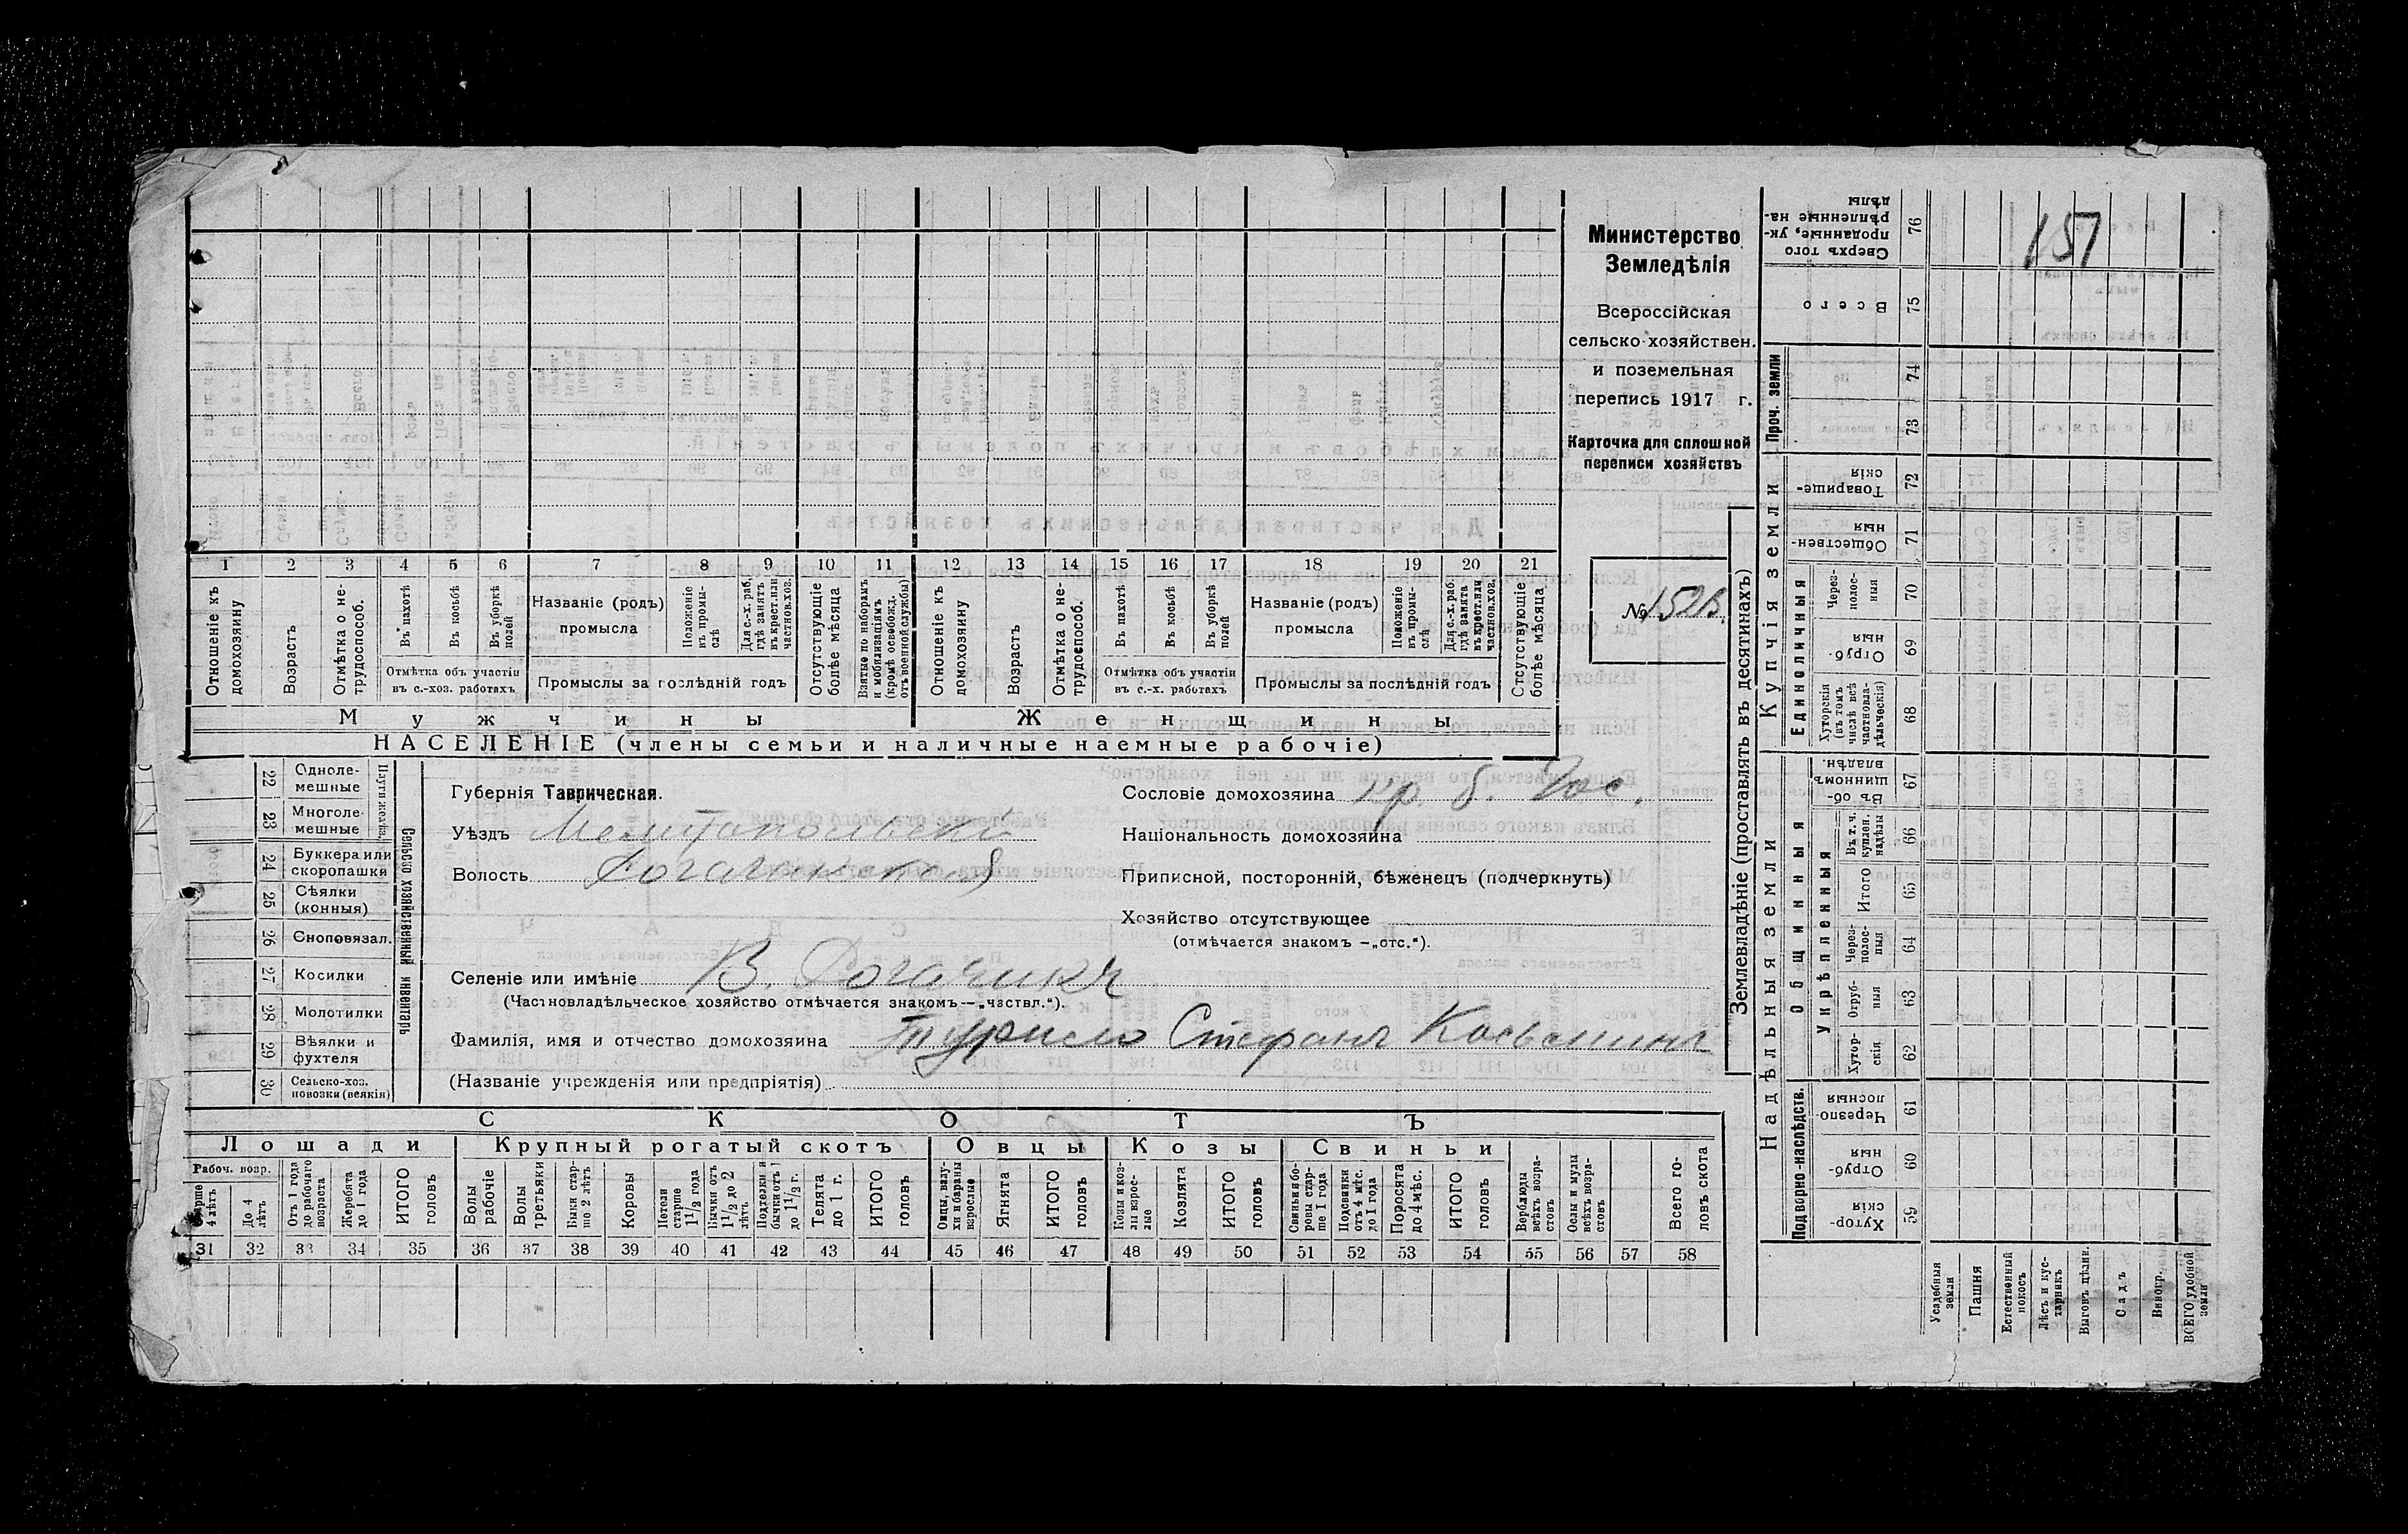 Министерство
Земледѣлія
Всероссійская
сельско-хозяйствен.
и поземельная
перепись 1917 г.
Карточка для сплошной
переписи хозяйствъ
№ 152В.
151
1 2 3 4 5 6 7 8 9 10 11 12 13 14 15 16 17 18 19 20 21
Отношеніе къ домохозяину
Возрастъ
Отмѣтка о нетрудоспособ.
Въ пахотѣ
Въ косьбѣ
Въ уборкѣ полей
Отмѣтка объ участіи
въ с.-хоз. работахъ
Названіе (родъ)
промысла
Положеніе въ промыслѣ
Для с.-х. раб. гдѣ занятъ въ крест. или частнов. хоз.
Промыслы за послѣдній годъ
Отсутствующіе болѣе мѣсяца
Взятые по наборамъ и мобилизаціямъ (кромѣ освобожд. отъ военной службы)
Отношеніе къ домохозяину
Возрастъ
Отмѣтка о нетрудоспособ.
Въ пахотѣ
Въ косьбѣ
Въ уборкѣ полей
Отмѣтка объ участіи
въ с.-х. работахъ
Названіе (родъ)
промысла
Положеніе въ промыслѣ
Для с.-х. раб. гдѣ занята въ крест. или частнов. хоз.
Промыслы за послѣдній годъ
Отсутствующіе болѣе мѣсяца
Мужчины
Женщины
НАСЕЛЕНІЕ (члены семьи и наличные наемные рабочіе)
Сельско хозяйственный инвентарь
22 Однолемешные
23 Многолемешные
24 Буккера или скоропашки
25 Сѣялки (конныя)
26 Сноповязал.
27 Косилки
28 Молотилки
29 Вѣялки и фухтеля
30 Сельско-хоз. повозки (всякія)
Губернія Таврическая.
Уѣздъ Мелитопольскій
Волость Рогачикская
Селеніе или имѣніе В. Рогачикъ
(Частновладѣльческое хозяйство отмѣчается знакомъ—„частвл.“).
Фамилія, имя и отчество домохозяина Стефанъ
(Названіе учрежденія или предпріятія)
Сословіе домохозяина кр. б. Гос.
Національность домохозяина
Приписной, посторонній, бѣженецъ (подчеркнуть)
Хозяйство отсутствующее
(отмѣчается знакомъ —„отс.“).
СКОТЪ
Лошади
Крупный рогатый скотъ
Овцы
Козы
Свиньи
Рабоч. возр.
Старше 4 лѣтъ
До 4 лѣтъ
Отъ 1 года до рабочаго возраста
Жеребята до 1 года
ИТОГО головъ
Волы рабочіе
Волы третьяки
Быки старше 2 лѣтъ
Коровы
Нетели старше 1 1/2 года
Бычки отъ 1 1/2 до 2 лѣтъ
Подтелки и бычки отъ 1 до 1 1/2 г.
Телята до 1 г.
ИТОГО головъ
Овцы, валухи и бараны взрослые
Ягнята
ИТОГО головъ
Козы и козлы взрослые
Козлята
ИТОГО головъ
Свиньи и боровы старше 1 года
Подсвинки отъ 4 мѣс. до 1 года
Поросята до 4 мѣс.
ИТОГО головъ
Верблюды всѣхъ возрастовъ
Ослы и мулы всѣхъ возрастовъ
Всего головъ скота
31 32 33 34 35 36 37 38 39 40 41 42 43 44 45 46 47 48 49 50 51 52 53 54 55 56 57 58
Землевладѣніе (проставлять въ десятинахъ)
Надѣльныя земли
Купчія земли
Проч. земли
Подворно-наслѣдств.
Общинныя
Укрѣпленныя
Единоличныя
Сверхъ того проданные, укрѣпленные надѣлы 76
Всего 75
74
73
Товарищескія 72
Общественныя 71
Черезполосныя 70
Отрубныя 69
Хуторскія (въ томъ числѣ всѣ частновладѣльческія) 68
Въ общинномъ владѣн. 67
Въ т. ч. куплен. надѣлы 66
Итого 65
Черезполосныя 64
Отрубныя 63
Хуторскія 62
Черезполосныя 61
Отрубныя 60
Хуторскія 59
Усадебныя земли
Пашня
Естественный покосъ
Лѣсъ и кустарникъ
Выгонъ цѣлин.
Садъ
Виногр.
ВСЕГО удобной земли